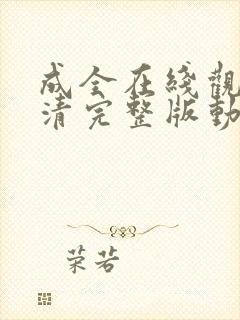 成全在綫觀
清完整版動
荣若